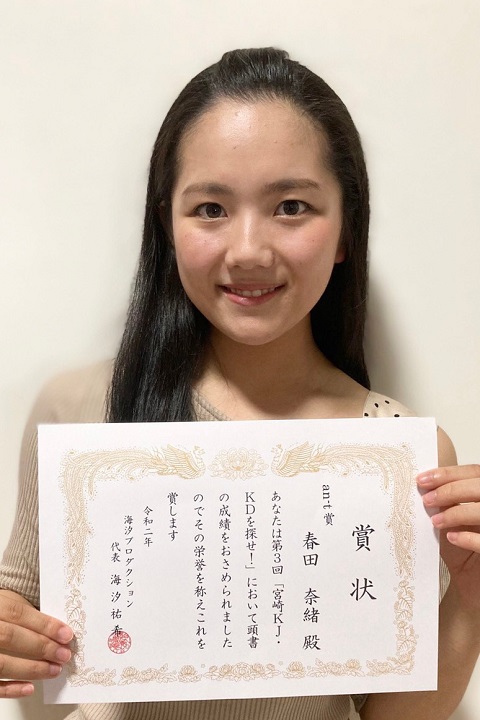 賞状
an-t賞
春田 奈緒 殿
あなたは第3回「宮崎KJ・
KDを探せ!」において頭書
の成績をおさめられました
のでその栄誉を称えこれを
賞します
令和二年
海汐プロダクション
代表 海汐祐希